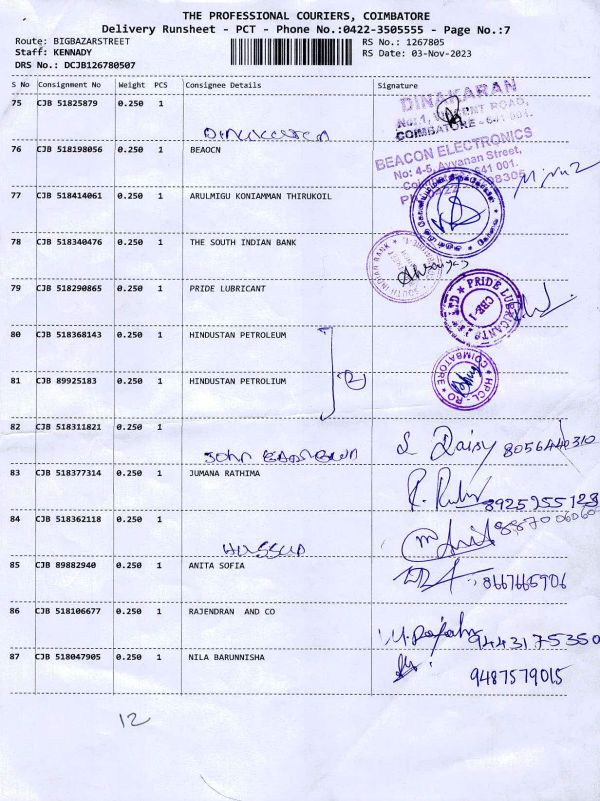 THE PROFESSIONAL COURIERS, COIMBATORE
Delivery Runsheet - PCT - Phone No.:0422-3505555 - Page No.:7
Route: BIGBAZARSTREET
RS No.: 1267805
Staff: KENNADY
RS Date: 03-Nov-2023
DRS No.: DCJB126780507
S No Consignment No Weight PCS Consignee Details Signature
75 CJB 51825879 0.250 1
DINAKARAN
COIMBATORE - 641 001.
76 CJB 518198056 0.250 1 BEAOCN
BEACON ELECTRONICS
No: 4-5, Ayyanan Street,
641 001.
77 CJB 518414061 0.250 1 ARULMIGU KONIAMMAN THIRUKOIL
78 CJB 518340476 0.250 1 THE SOUTH INDIAN BANK
SOUTH INDIAN BANK
79 CJB 518290865 0.250 1 PRIDE LUBRICANT
PRIDE LUBRICANTS
CBE-1
80 CJB 518368143 0.250 1 HINDUSTAN PETROLEUM
81 CJB 89925183 0.250 1 HINDUSTAN PETROLIUM
HPCL-RO
COIMBATORE
82 CJB 518311821 0.250 1
John
S Daisy 8056440310
83 CJB 518377314 0.250 1 JUMANA RATHIMA
8925255123
84 CJB 518362118 0.250 1
85 CJB 89882940 0.250 1 ANITA SOFIA
8667665906
86 CJB 518106677 0.250 1 RAJENDRAN AND CO
9443175350
87 CJB 518047905 0.250 1 NILA BARUNNISHA
9487579015
12